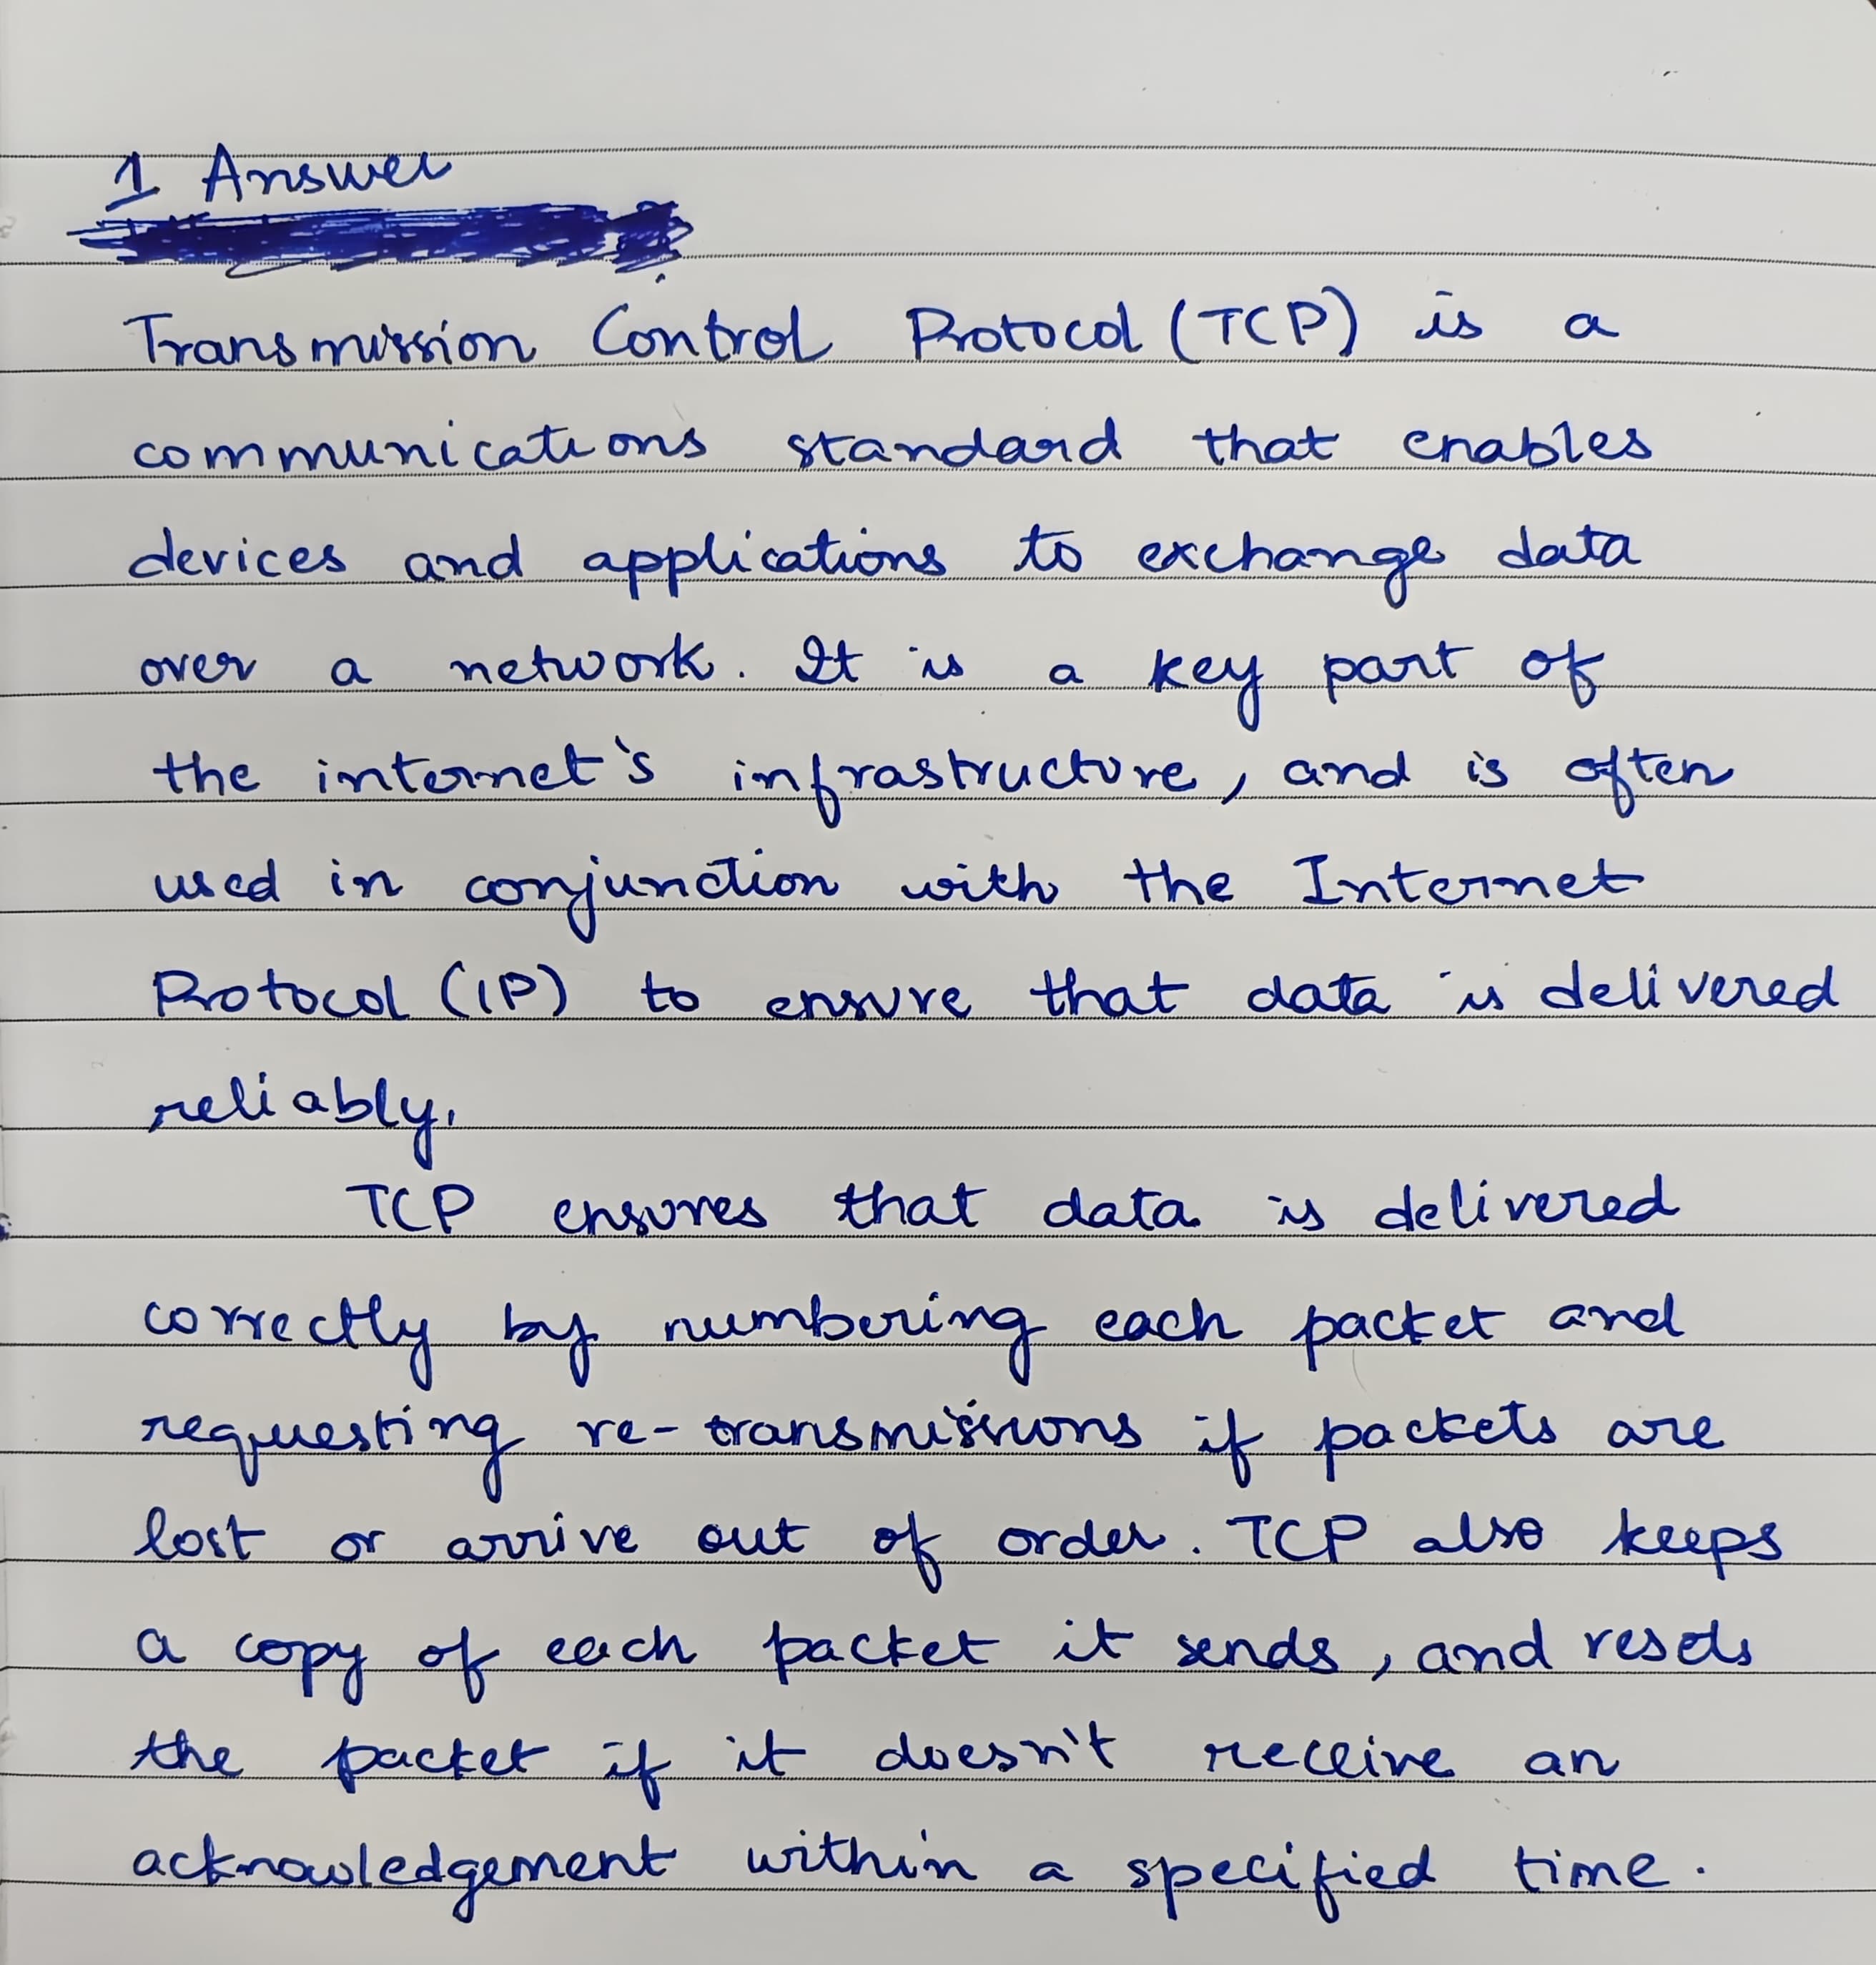 1 Answer
Transmission Control Protocol (TCP) is a
communications standard that enables
devices and applications to exchange data
over a network. It is a key part of
the internet's infrastructure, and is often
used in conjunction with the Internet
Protocol (IP) to ensure that data is delivered
reliably.
TCP ensures that data is delivered
correctly by numbering each packet and
requesting re-transmissions if packets are
lost or arrive out of order. TCP also keeps
a copy of each packet it sends, and resets
the packet if it doesn't receive an
acknowledgement within a specified time.